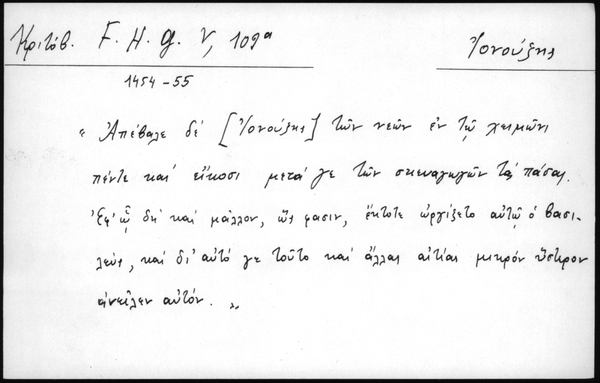 Κριτόβ. F. H. G. V, 109ᵃ
Ἰονούζης
1454-55
"Ἀπέβαλε δέ [Ἰονούζης] τῶν νεῶν ἐν τῷ χειμῶνι
πέντε καί εἴκοσι μετά γε τῶν σκευαγωγῶν τάς πάσας.
Ἐφ' ᾧ δή καί μᾶλλον, ὥς φασιν, ἔκτοτε ὠργίζετο αὐτῷ ὁ βασι-
λεύς, καί δι' αὐτό γε τοῦτο καί ἄλλας αἰτίας μικρόν ὕστερον
ἀνεῖλεν αὐτόν. "